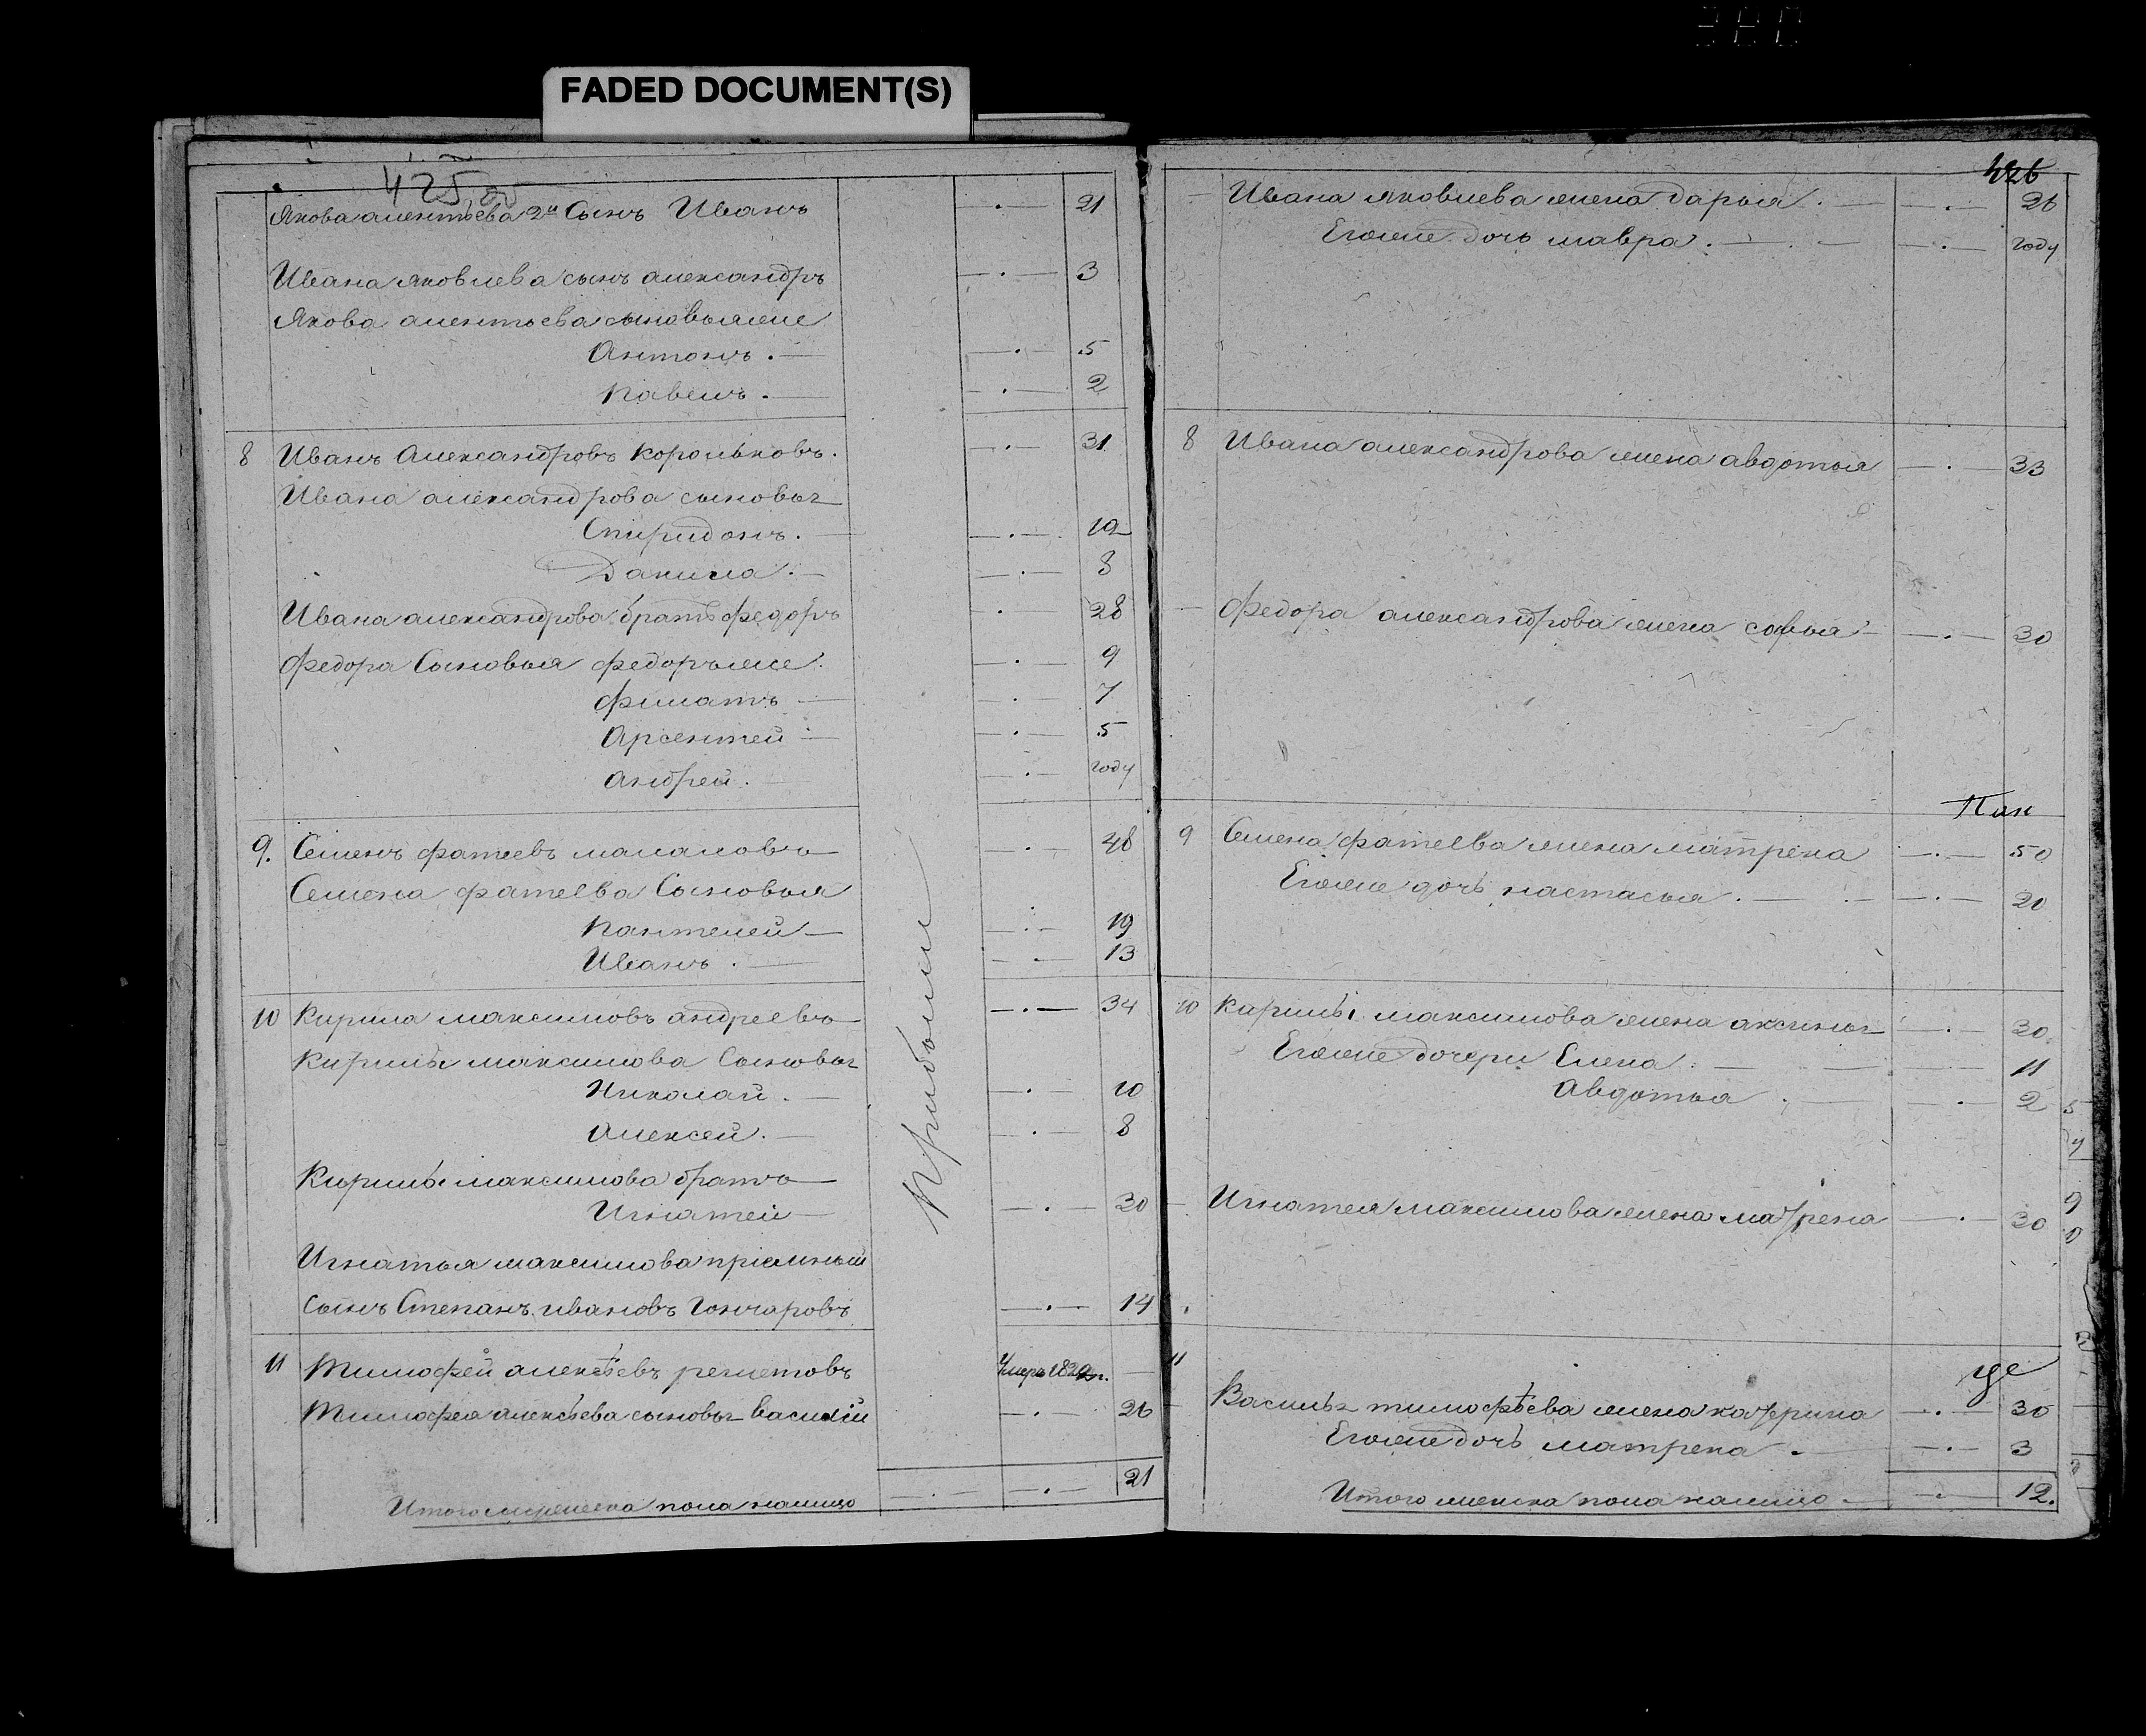 FADED DOCUMENT(S)
425
Якова алентьева 2й Сынъ Иванъ — . — 21
Ивана яковлева сынъ александръ — . — 3
Якова алентьева сыновьяже
Антонъ . — . — 5
Павелъ . — . — 2
8 Иванъ Александровъ корольковъ . — . — 31
Ивана александрова сыновьг
Спиридонъ . — . — 12
Данила . — . — 8
Ивана александрова братъ федоръ — . — 28
федора Сыновья федорьже — . — 9
филатъ — . — 7
Арсентей — . — 5
андрей . — . — году
9. Семенъ фатеевъ малаловъ — . — 48
Семена фатеева Сыновья
Пантелей — . — 19
Иванъ . — . — 13
10 Кирила максимовъ андреевъ — . — 34
Кирилы максимова Сыновьг
Николай . — . — 10
Алексей . — . — 8
Кирилы максимова братъ
Игнатей — . — 30
Игнатья максимова пріемный
сынъ Степанъ ивановъ Гончаровъ — . — 14
11 Тимофей алексѣевъ решетовъ Умеръ —
Тимофея алексѣева сыновьг василій — . — 26
Итого мужеска пола налицо — . — — . — 21
Прибыли
426
Ивана яковлева жена дарья . — . — 26
Егоже дочь мавра . — . — году
8 Ивана александрова жена авдотья — . — 33
федора александрова жена софья — . — 30
Пан
9 Семена фатеева жена матрена — . — 50
Егоже дочь настасья . — . — 20
10 Кирилы максимова жена аксинья — . — 30
Егоже дочери Елена . — 11
Авдотья . — . — 2
Игнатея максимова жена матрена — . — 30
11
це
Василья тимофѣева жена катерина — . — 30
Егоже дочь матрена . — . — 3
Итого женска пола налицо . — . — 12.